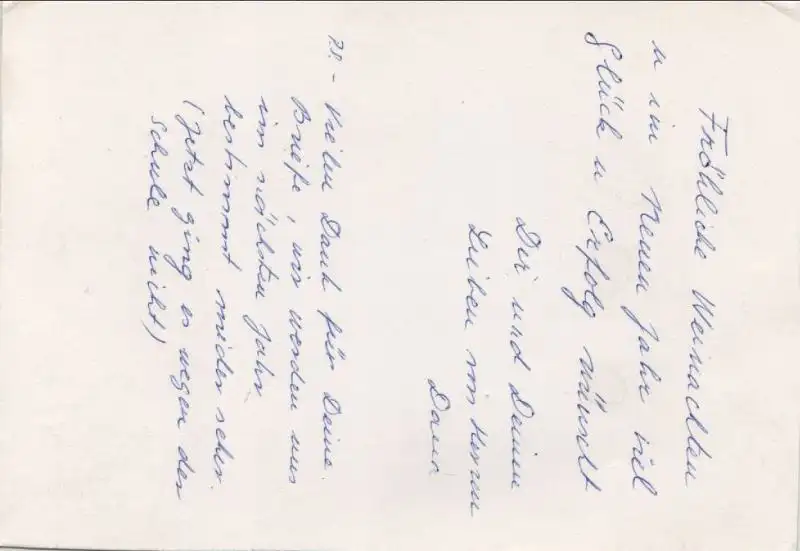 Fröhliche Weinachten
u im Neuen Jahr viel
Glück u Erfolg wünscht
Dir und Deinen
Lieben von Herzen
Dana
P.S. - Vielen Dank für Deine
Briefe, wir werden uns
im nächsten Jahr
bestimmt wieder sehn.
(Jetzt ging es wegen der
Schule nicht)